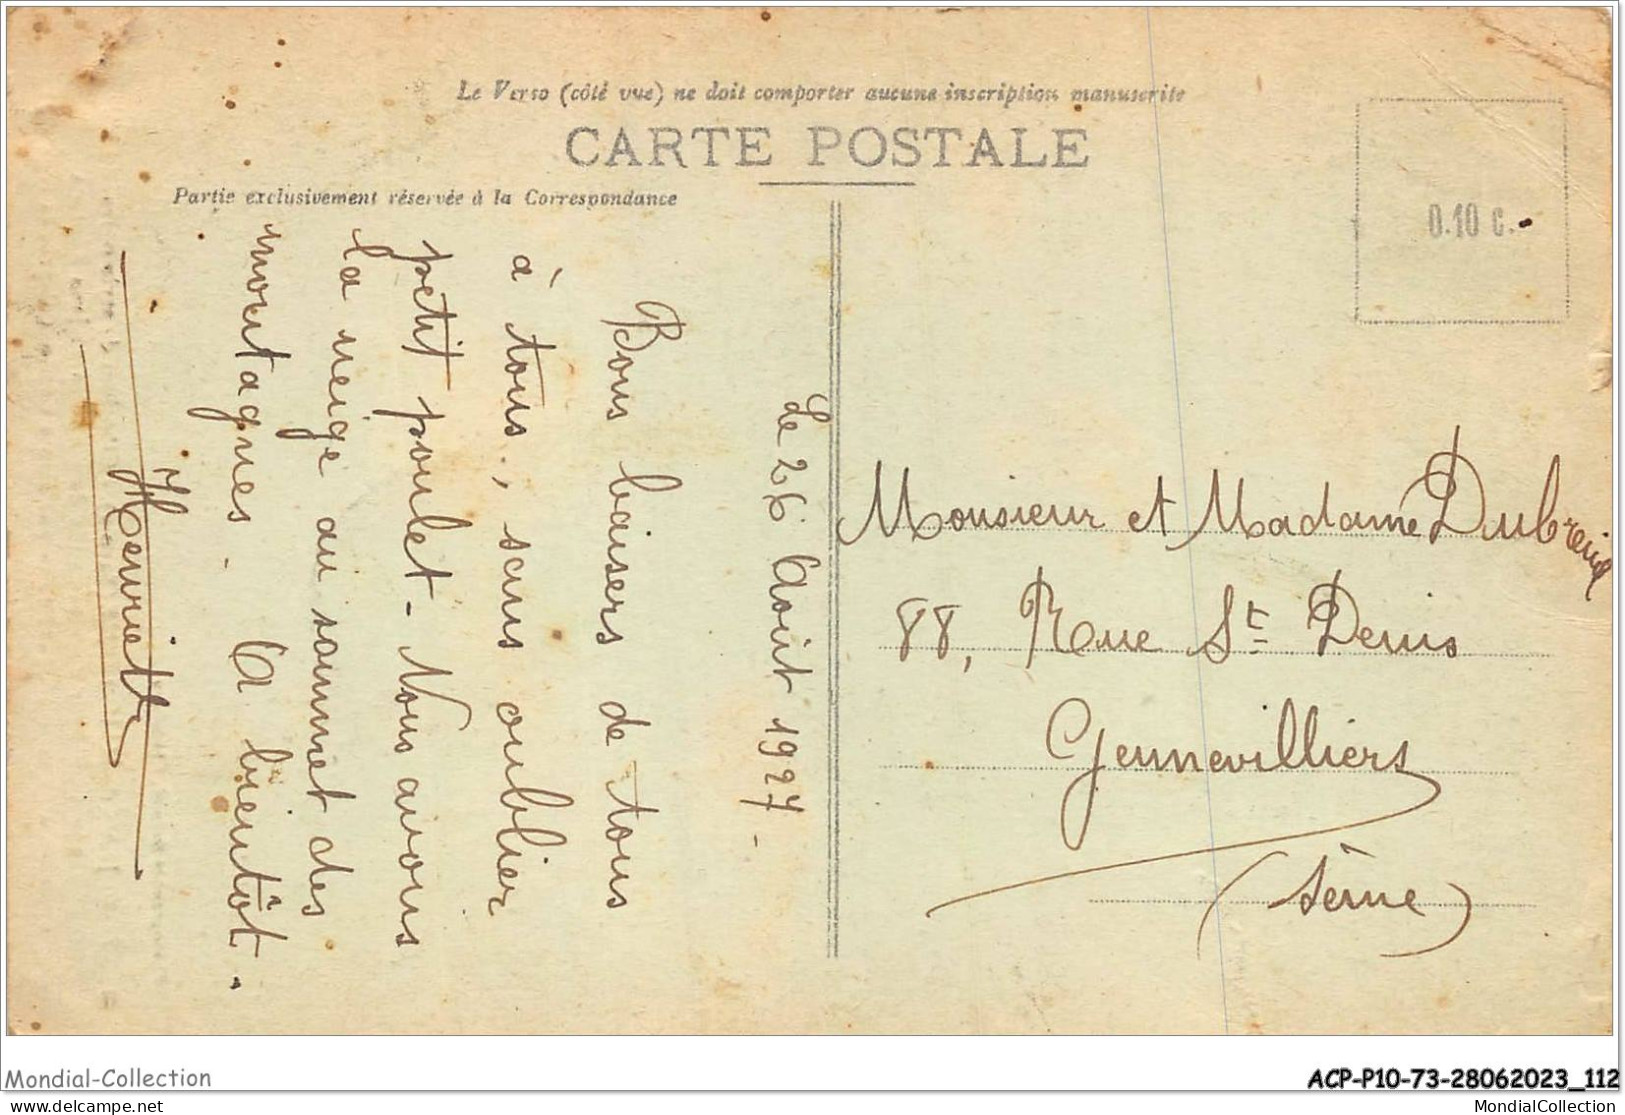 Le Verso (côté vue) ne doit comporter aucune inscription manuscrite
CARTE POSTALE
Partie exclusivement réservée à la Correspondance
0.10 c.
Le 26 Août 1927 -
Bons baisers de tous
à tous, sans oublier
petit poulet - Nous avons
la neige au sommet des
montagnes. A bientôt.
Henriette
Monsieur et Madame Dubreuil
88, Rue St Denis
Gennevilliers
(Seine)
Mondial-Collection
ACP-P10-73-28062023_112
delcampe.net
MondialCollection